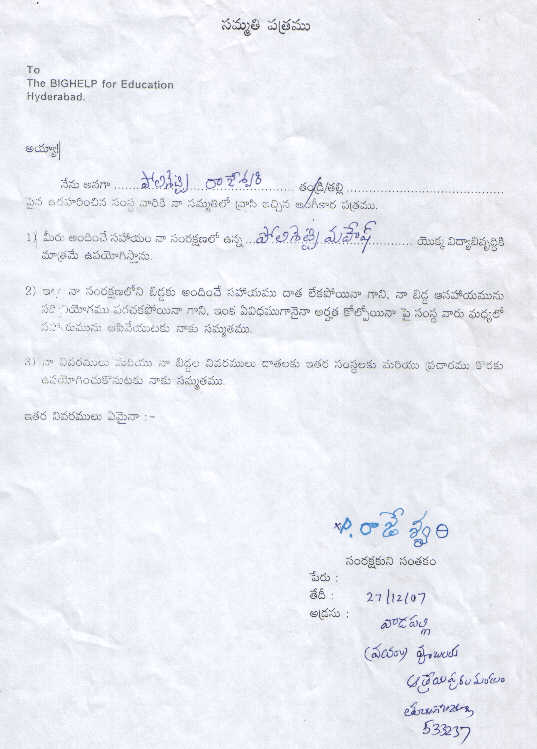 సమ్మతి పత్రము
To
The BIGHELP for Education
Hyderabad.
అయ్యా!
నేను అనగా ..... పోలిశెట్టి రాజేశ్వరి ..... తండ్రి/తల్లి .....
పైన ఉదహరించిన సంస్థ వారికి నా సమ్మతిలో వ్రాసి ఇచ్చిన అంగీకార పత్రము.
1) మీరు అందించే సహాయం నా సంరక్షణలో ఉన్న ..... పోలిశెట్టి మహేష్ ..... యొక్క విద్యాభివృద్ధికి
మాత్రమే ఉపయోగిస్తాను.
2) నా సంరక్షణలోని బిడ్డకు అందించే సహాయము దాత లేకపోయినా గాని, నా బిడ్డ ఆసహాయమును
పరచకపోయినా గాని, ఇంక ఏవిధముగానైనా అర్హత కోల్పోయినా పై సంస్థ వారు మధ్యలో
సహాయమును ఆపివేయుటకు నాకు సమ్మతము.
3) నా వివరములు మరియు నా బిడ్డల వివరములు దాతలకు ఇతర సంస్థలకు మరియు ప్రచారము కొరకు
ఉపయోగించుకొనుటకు నాకు సమ్మతము.
ఇతర వివరములు ఏమైనా :-
P. రాజేశ్వరి
సంరక్షకుని సంతకం
పేరు :
తేదీ : 27/12/07
అడ్రసు :
వాడపల్లి
(వయా)
ఆత్రేయపురం మండలం
533237